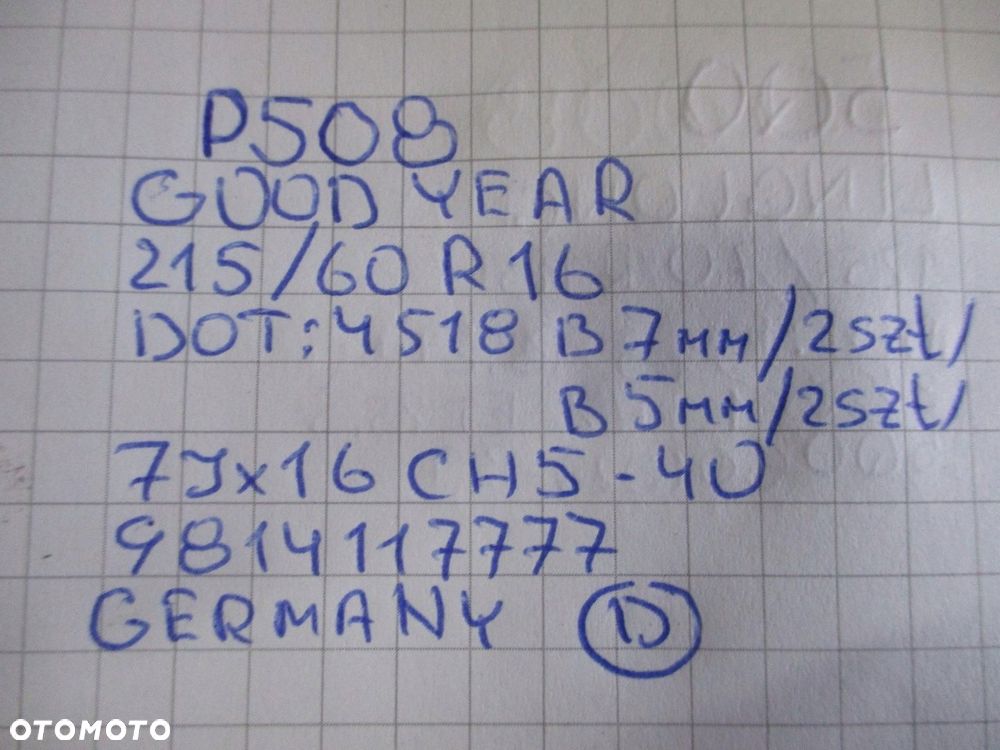 P508
GOOD YEAR
215/60 R16
DOT: 4518 B 7mm/2szt/
B 5mm/2szt/
7Jx16 CH5-40
9814117777
GERMANY D
OTOMOTO